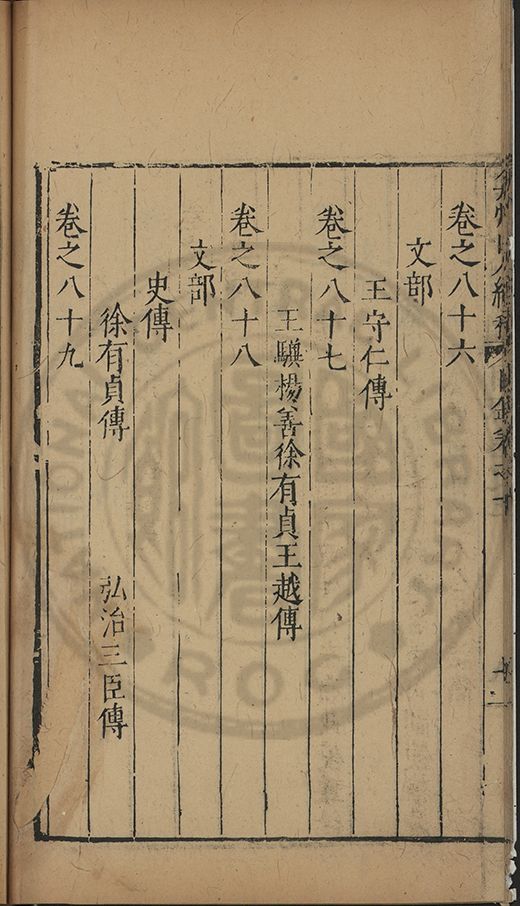 卷之八十六
文部
王守仁傳
卷之八十七
王驥楊善徐有貞王越傳
卷之八十八
文部
史傳
徐有貞傳 弘治三臣傳
卷之八十九